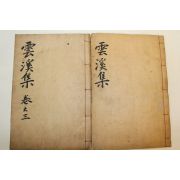 雲溪集
雲溪集 卷之三